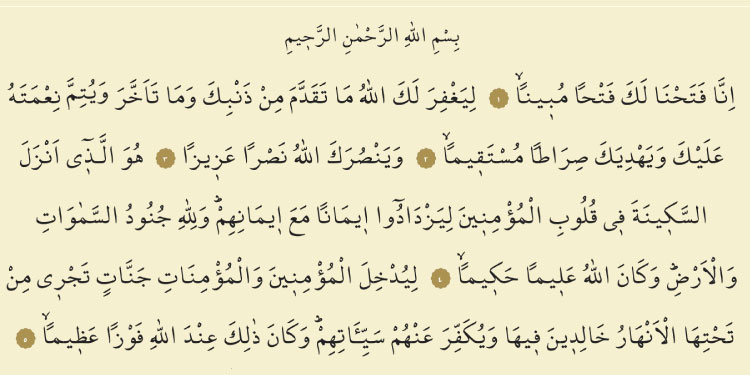 بِسْمِ اللّٰهِ الرَّحْمٰنِ الرَّح۪يمِ
اِنَّا فَتَحْنَا لَكَ فَتْحًا مُب۪ينًاۙ ١ لِيَغْفِرَ لَكَ اللّٰهُ مَا تَقَدَّمَ مِنْ ذَنْبِكَ وَمَا تَاَخَّرَ وَيُتِمَّ نِعْمَتَهُ
عَلَيْكَ وَيَهْدِيَكَ صِرَاطًا مُسْتَق۪يمًاۙ ٢ وَيَنْصُرَكَ اللّٰهُ نَصْرًا عَز۪يزًا ٣ هُوَ الَّـذ۪ٓي اَنْزَلَ
السَّك۪ينَةَ ف۪ي قُلُوبِ الْمُؤْمِن۪ينَ لِيَزْدَادُٓوا ا۪يمَانًا مَعَ ا۪يمَانِهِمْۜ وَلِلّٰهِ جُنُودُ السَّمٰوَاتِ
وَالْاَرْضِۜ وَكَانَ اللّٰهُ عَل۪يمًا حَك۪يمًاۙ ٤ لِيُدْخِلَ الْمُؤْمِن۪ينَ وَالْمُؤْمِنَاتِ جَنَّاتٍ تَجْر۪ي مِنْ
تَحْتِهَا الْاَنْهَارُ خَالِد۪ينَ ف۪يهَا وَيُكَفِّرَ عَنْهُمْ سَيِّـَٔاتِهِمْۜ وَكَانَ ذٰلِكَ عِنْدَ اللّٰهِ فَوْزًا عَظ۪يمًاۙ ٥